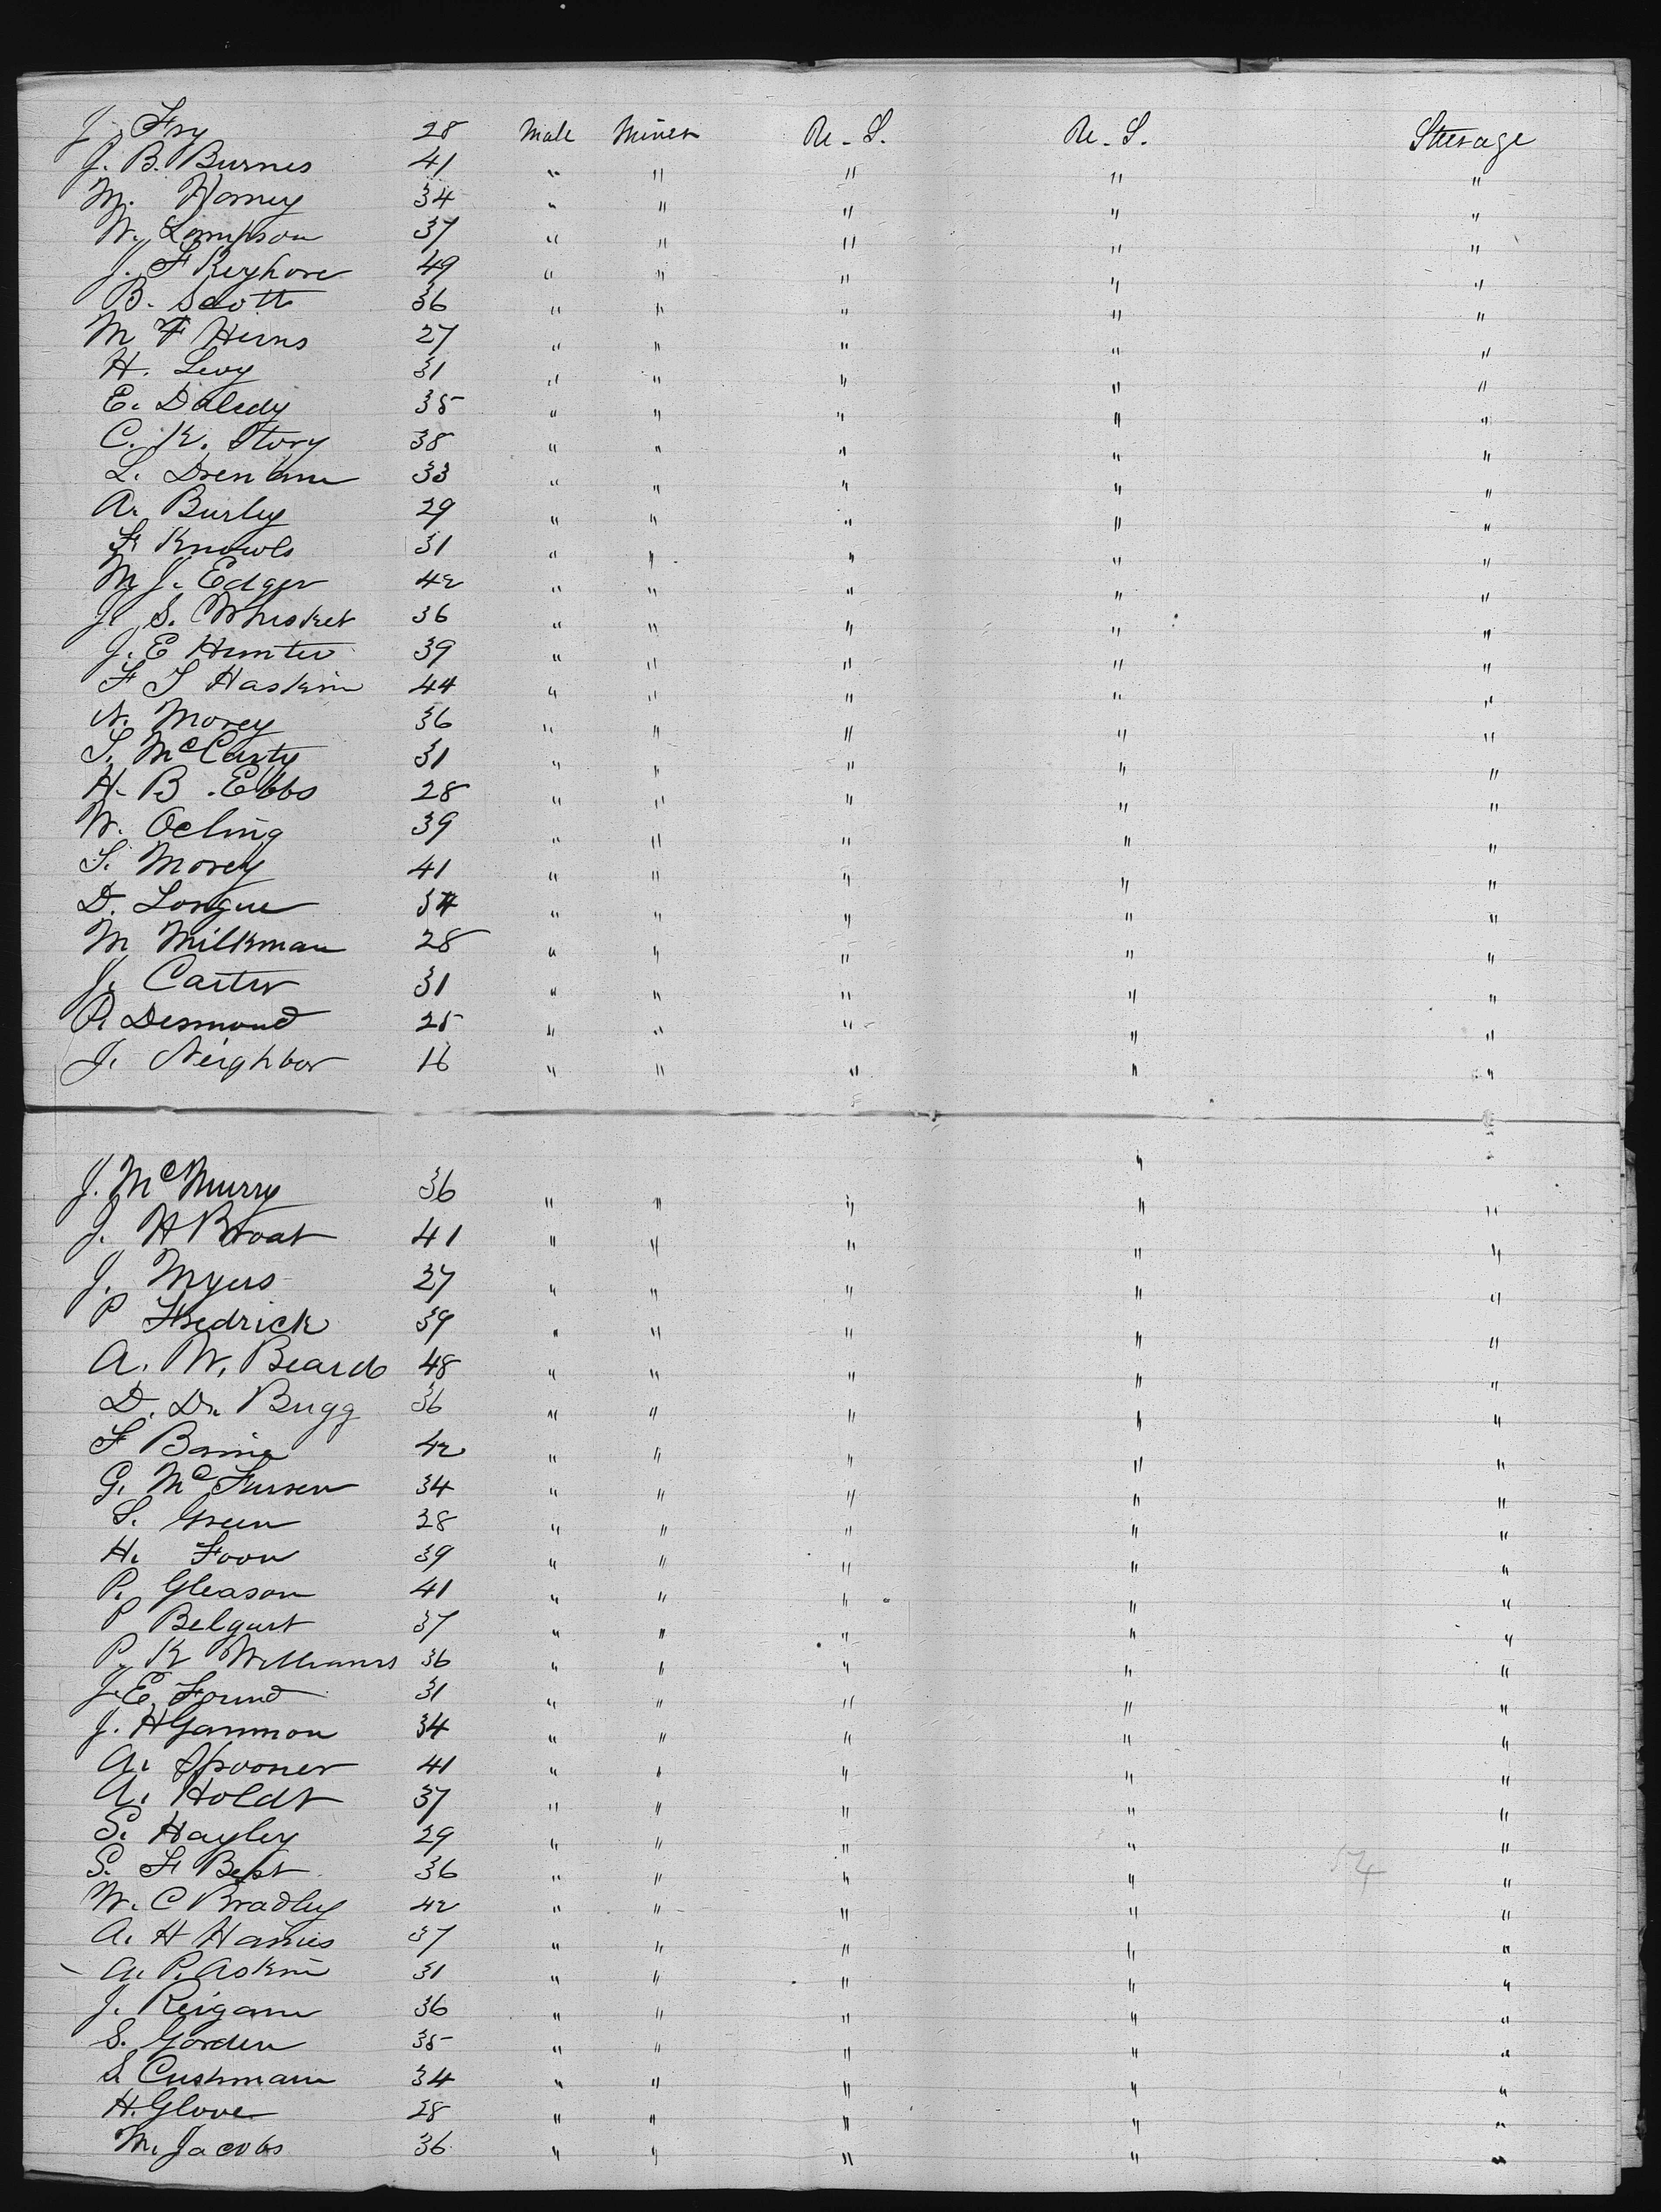 J. Fry 28 Male Miner U. S. U. S. Steerage
J. B. Burnes 41 " " " " "
M. Harney 34 " " " " "
W. Lampson 37 " " " " "
J. F Keyhore 49 " " " " "
B. Scott 36 " " " " "
M F Hirns 27 " " " " "
H. Levy 31 " " " " "
E. Daledy 35 " " " " "
C. K. Story 38 " " " " "
L. Drenann 33 " " " " "
A. Burley 29 " " " " "
F. Knowls 31 " " " " "
M. J. Edger 42 " " " " "
J. S. Whisket 36 " " " " "
J. E Hunter 39 " " " " "
F S Haskin 44 " " " " "
N. Morey 36 " " " " "
S. McCarty 31 " " " " "
H. B. Ebbs 28 " " " " "
W. Ocling 39 " " " " "
S. Morey 41 " " " " "
D. Longue 34 " " " " "
M Milkman 28 " " " " "
J. Carter 31 " " " " "
P. Desmond 25 " " " " "
J. Neighbor 16 " " " " "
"
J. McMurry 36 " " " " "
J. H Broat 41 " " " " "
J. Myers 27 " " " " "
P Fredrick 39 " " " " "
A. W. Beards 48 " " " " "
D. Dr. Bugg 36 " " " " "
F 42 " " " " "
G. Mc 34 " " " " "
S. Green 28 " " " " "
H. Foon 39 " " " " "
P. Gleason 41 " " " " "
P Belgart 37 " " " " "
P. K Williams 36 " " " " "
J. E. Found 31 " " " " "
J. H Gammon 34 " " " " "
A. Spooner 41 " " " " "
A. Holdt 37 " " " " "
S. Hayley 29 " " " " "
S. F Best 36 " " " " "
W. C Bradley 42 " " " " "
A. H Harris 37 " " " " "
A. P. Askin 31 " " " " "
J. Reigann 36 " " " " "
S. Gorden 35 " " " " "
S Cushmann 34 " " " " "
H. Glove 28 " " " " "
M. Jacobs 36 " " " " "